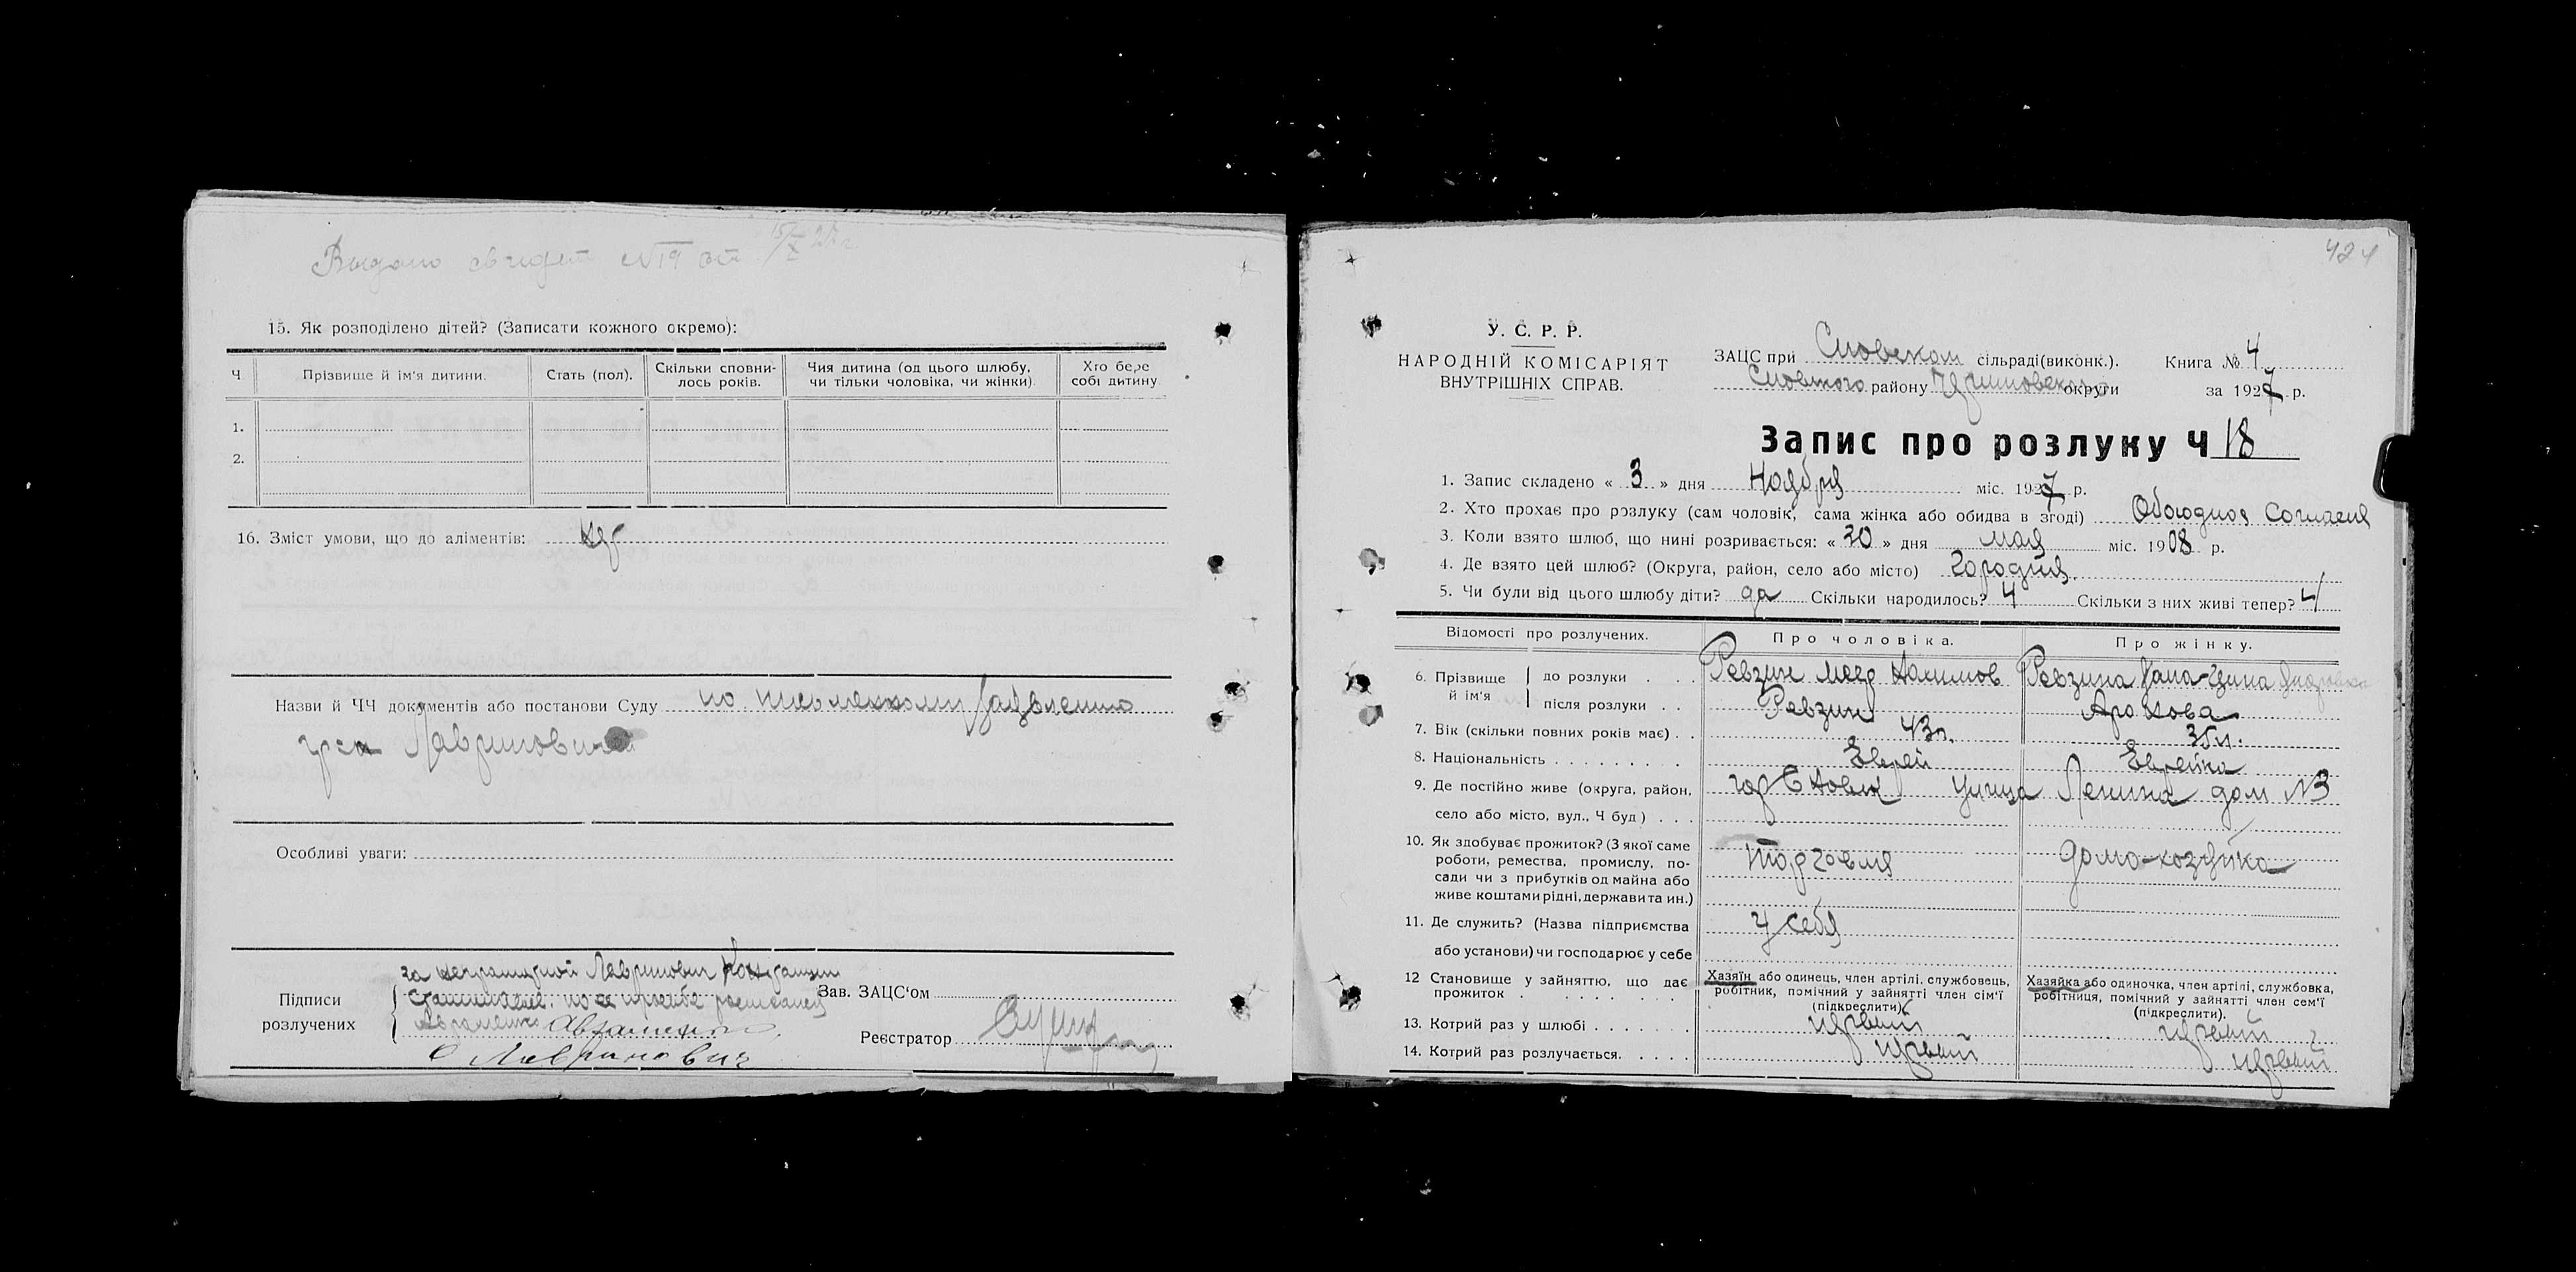 Выдано свидет №19 от 15/X 27 г
15. Як розподілено дітей? (Записати кожного окремо):
Ч. Прізвище й ім'я дитини. Стать (пол). Скільки сповнилось років. Чия дитина (од цього шлюбу, чи тільки чоловіка, чи жінки) Хто бере собі дитину.
1.
2.
16. Зміст умови, що до аліментів:
Назви й ЧЧ документів або постанови Суду по письменному заявлению
гр-на Лавринович
Особливі уваги:
за неграмотной Лавринович
Підписи розлучених
Авраменко
Зав. ЗАЦС'ом
Реєстратор
Лавринович
424
У. С. Р. Р.
НАРОДНІЙ КОМІСАРІЯТ
ВНУТРІШНІХ СПРАВ.
ЗАЦС при Сновском сільраді(виконк.). Книга № 4
Сновского району округи за 1927 р.
Запис про розлуку Ч 18
1. Запис складено « 3 » дня Ноября міс. 1927 р.
2. Хто прохає про розлуку (сам чоловік, сама жінка або обидва в згоді) Обоюдное Согласия
3. Коли взято шлюб, що нині розривається: « 30 » дня мая міс. 1908 р.
4. Де взято цей шлюб? (Округа, район, село або місто) Городня.
5. Чи були від цього шлюбу діти? да Скільки народилось? 4 Скільки з них живі тепер? 4
Відомості про розлучених. Про чоловіка. Про жінку.
6. Прізвище й ім'я до розлуки . . . Ревзин Меер Ревзина
після розлуки . . Ревзин Аронова
7. Вік (скільки повних років має) . . 43л. 35л.
8. Національність . . . . . . . . . Еврей Еврейка
9. Де постійно живе (округа, район, гор Сновск Улица Ленина дом №3
село або місто, вул., Ч буд) . . .
10. Як здобуває прожиток? (З якої саме
роботи, ремества, промислу, по- торговля домо-хозяйка
сади чи з прибутків од майна або
живе коштами рідні, держави та ин.)
11. Де служить? (Назва підприємства у себя
або установи) чи господарює у себе
12 Становище у зайняттю, що дає прожиток . . . . . . . .
Хазяїн або одинець, член артілі, службовець, робітник, помічний у зайнятті член сім'ї (підкреслити)
Хазяйка або одиночка, член артілі, службовка, робітниця, помічний у зайнятті член сем'ї (підкреслити).
13. Котрий раз у шлюбі . . . . . . . первый первый
14. Котрий раз розлучається. . . . . первый первый